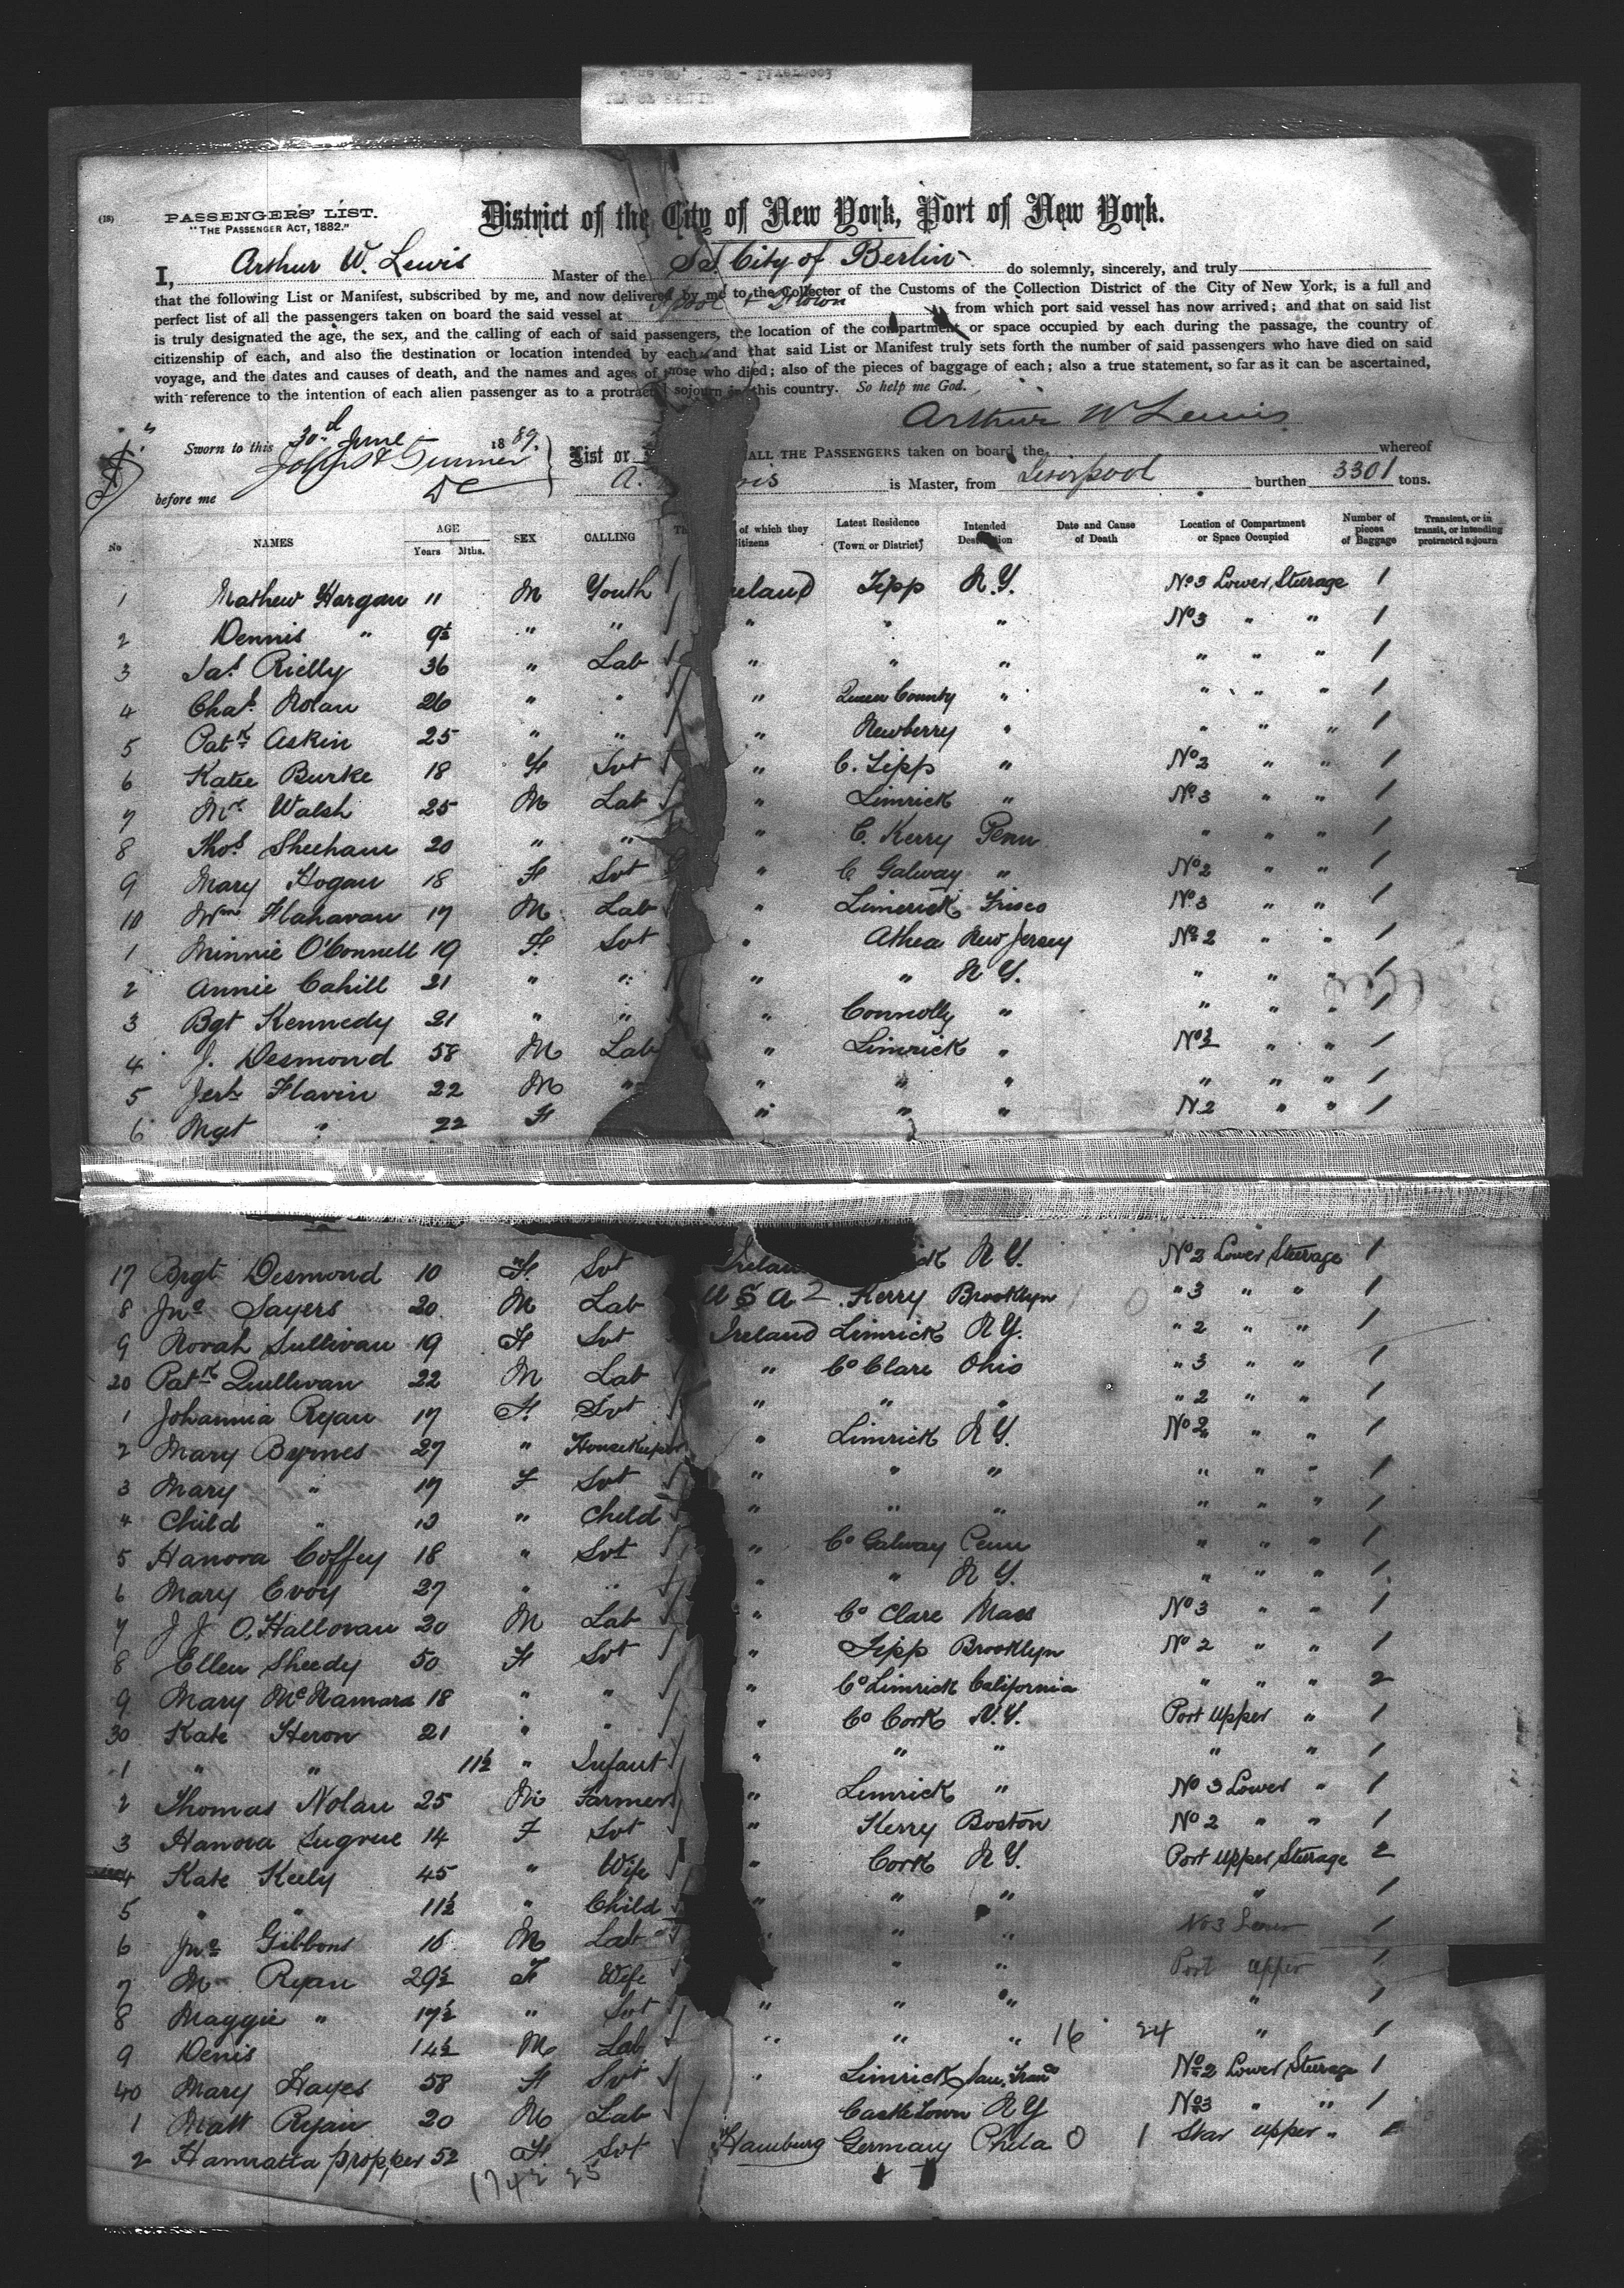 (18)
PASSENGERS' LIST.
"THE PASSENGER ACT, 1882."
District of the City of New York, Port of New York.
I, Arthur W. Lewis Master of the SS. City of Berlin do solemnly, sincerely, and truly
that the following List or Manifest, subscribed by me, and now delivered by me to the Collector of the Customs of the Collection District of the City of New York, is a full and
perfect list of all the passengers taken on board the said vessel at from which port said vessel has now arrived; and that on said list
is truly designated the age, the sex, and the calling of each of said passengers, the location of the compartment or space occupied by each during the passage, the country of
citizenship of each, and also the destination or location intended by each and that said List or Manifest truly sets forth the number of said passengers who have died on said
voyage, and the dates and causes of death, and the names and ages of those who died; also of the pieces of baggage of each; also a true statement, so far as it can be ascertained,
with reference to the intention of each alien passenger as to a protracted sojourn in this country. So help me God.
Arthur W Lewis
Sworn to this 30th June 1889.
before me
List or ALL THE PASSENGERS taken on board the whereof
A. is Master, from Liverpool burthen 3301 tons.
No NAMES AGE Years Mths. SEX CALLING of which they Latest Residence (Town or District) Intended Destination Date and Cause of Death Location of Compartment or Space Occupied Number of pieces of Baggage Transient, or in transit, or intending protracted sojourn
1 Mathew Hargan 11 M Youth reland Tipp N.Y. No 3 Lower Sterage 1
2 Dennis " 9½ " " " " " No 3 " " 1
3 Jas. Rielly 36 " Lab " " " " " " 1
4 Chas. Nolan 26 " " " Queen County " " " " 1
5 Patk Askin 25 " " " Newberry " " " "
6 Katie Burke 18 F Svt " C. Tipp " No 2 " " 1
7 Walsh 25 M Lab " Limrick " No 3 " " 1
8 Thos. Sheehan 20 " " " C. Kerry Penn " " " 1
9 Mary Hogan 18 F Svt " C Galway " No 2 " " 1
10 Wm Flahavan 17 M Lab " Limerick Frisco No 3 " " 1
1 Minnie O'Connell 19 F Svt " Athea New Jersey No 2 " " 1
2 Annie Cahill 21 " " " " N.Y. " " " 1
3 Bgt Kennedy 21 " " " Connolly " " " " 1
4 J. Desmond 58 M Lab " Limrick " No " " 1
5 Jerh Flavin 22 M " " " " " " " 1
6 Mgt " 22 F " " " N.2 " " 1
17 Brgt Desmond 10 F. Svt Irelan ck N.Y. No 2 Lower Steerage 1
8 Jno Sayers 20 M Lab U S A 2 Kerry Brooklyn " 3 " " 1
9 Norah Sullivan 19 F Svt Ireland Limrick N.Y. " 2 " " 1
20 Patk Quillivan 22 M Lab " Co Clare Ohio " 3 " " 1
1 Johannia Ryan 17 F. Svt " " " " 2 " " 1
2 Mary Byrnes 27 " Housekeeper " Limrick N.Y. No 2 " " 1
3 Mary " 17 F Svt " " " " " " 1
4 Child " 10 " Child " " " " " " 1
5 Hanora Coffey 18 " Svt " Co Galway Penn " " " 1
6 Mary Evoy 27 " " " " N.Y. " " " 1
7 J J O'Hallovan 20 M Lab " Co Clare Mass No 3 " " 1
8 Ellen Sheedy 50 F Svt " Tipp Brooklyn No 2 " " 1
9 Mary McNamara 18 " " " Co Limrick California " " " 2
30 Kate Heron 21 " " " Co Cork N.Y. Port Upper " 1
1 " " 11½ " Infant " " " " " 1
2 Thomas Nolan 25 M Farmer " Limrick " No 3 Lower " 1
3 Hanora Sugrue 14 F Svt " Kerry Boston No 2 " " 1
4 Kate Keely 45 " Wife " Cork N.Y. Port Upper Sterage 2
5 " " 11½ " Child " " " " 1
6 Jno Gibbons 16 M Lab " " " No 3 Lower 1
7 M Ryan 29½ F Wife " " Port Upper 1
8 Maggie " 17½ " Svt " " " " 1
9 Denis 14½ M Lab " " " 16 24 " 1
40 Mary Hayes 58 F Svt " Limrick San Fran No 2 Lower Sterage 1
1 Matt Ryan 20 M Lab Castletown N Y No 3 " " 1
2 Hannatta propper 52 F Svt Hamburg Germany Phila 0 1 Star Upper "